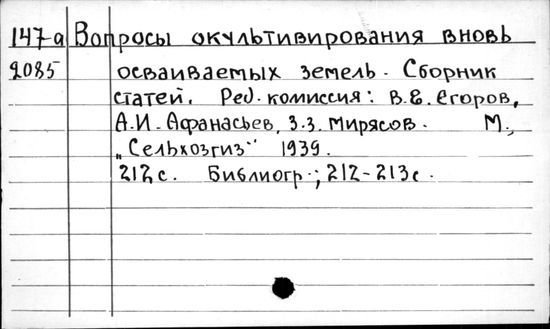 147-а Вопросы окультивирования вновь
2085 осваиваемых земель. Сборник
статей. Ред. комиссия: В.Е. Егоров,
А.И. Афанасьев, З.З. Мирясов. М.,
„Сельхозгиз" 1939.
212 с. Библиогр.; 212-213 с.